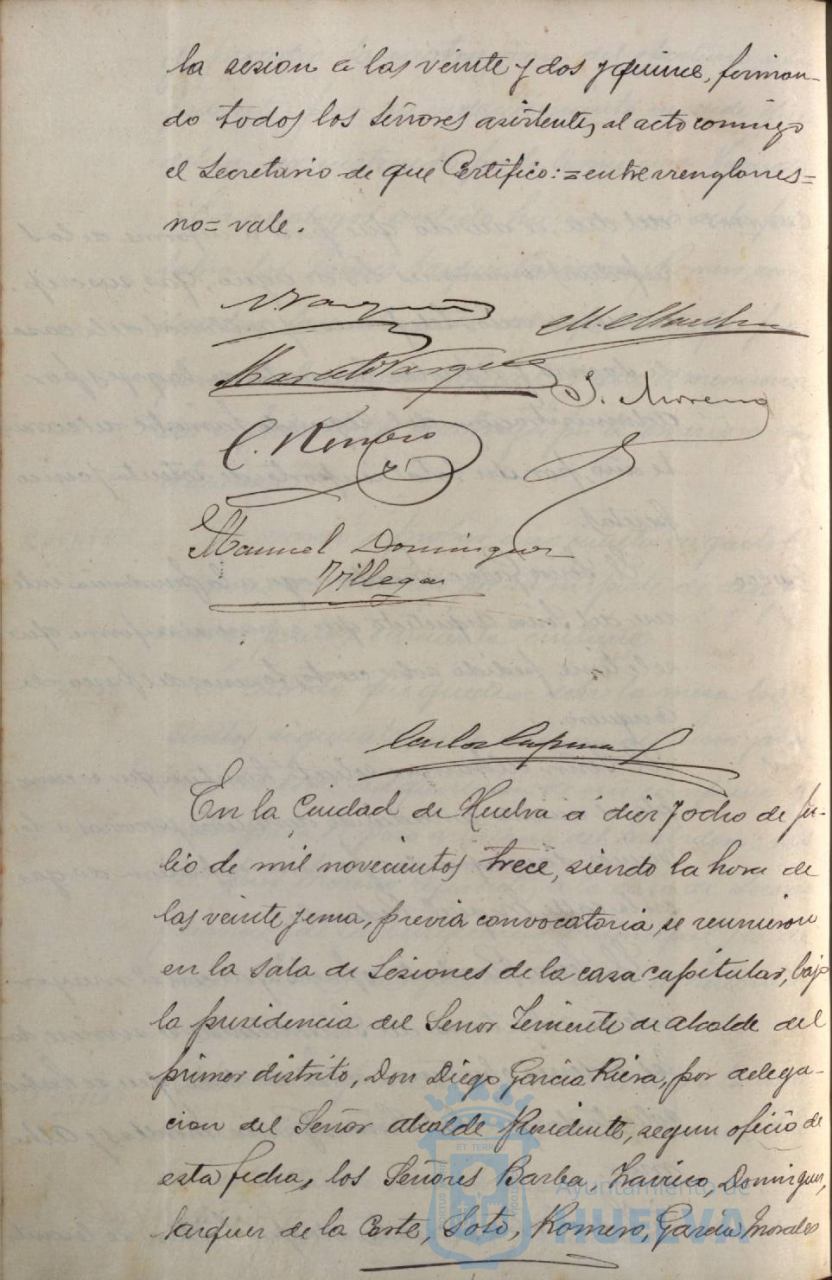 la sesion á las veinte y dos y quince, firman-
do todos los Señores asistentes, al acto conmigo
el Secretario de que Certifico: = entre renglones =
no = vale.
M.
J. Moreno
C. Romero
Manuel Dominguez
Villegas
Carlos
En la Ciudad de Huelva á diez y ocho de Ju-
lio de mil novecientos trece, siendo la hora de
las veinte y una, previa convocatoria, se reunieron
en la sala de Sesiones de la casa capitular, bajo
la presidencia del Señor Teniente de alcalde del
primer distrito, Don Diego Garcia Riera, por delega-
cion del Señor alcalde Presidente, segun oficio de
esta fecha, los Señores Barba, Dominguez,
Vazquez de la Corte, Soto, Romero, Garcia Morales
Ayuntamiento de
HUELVA